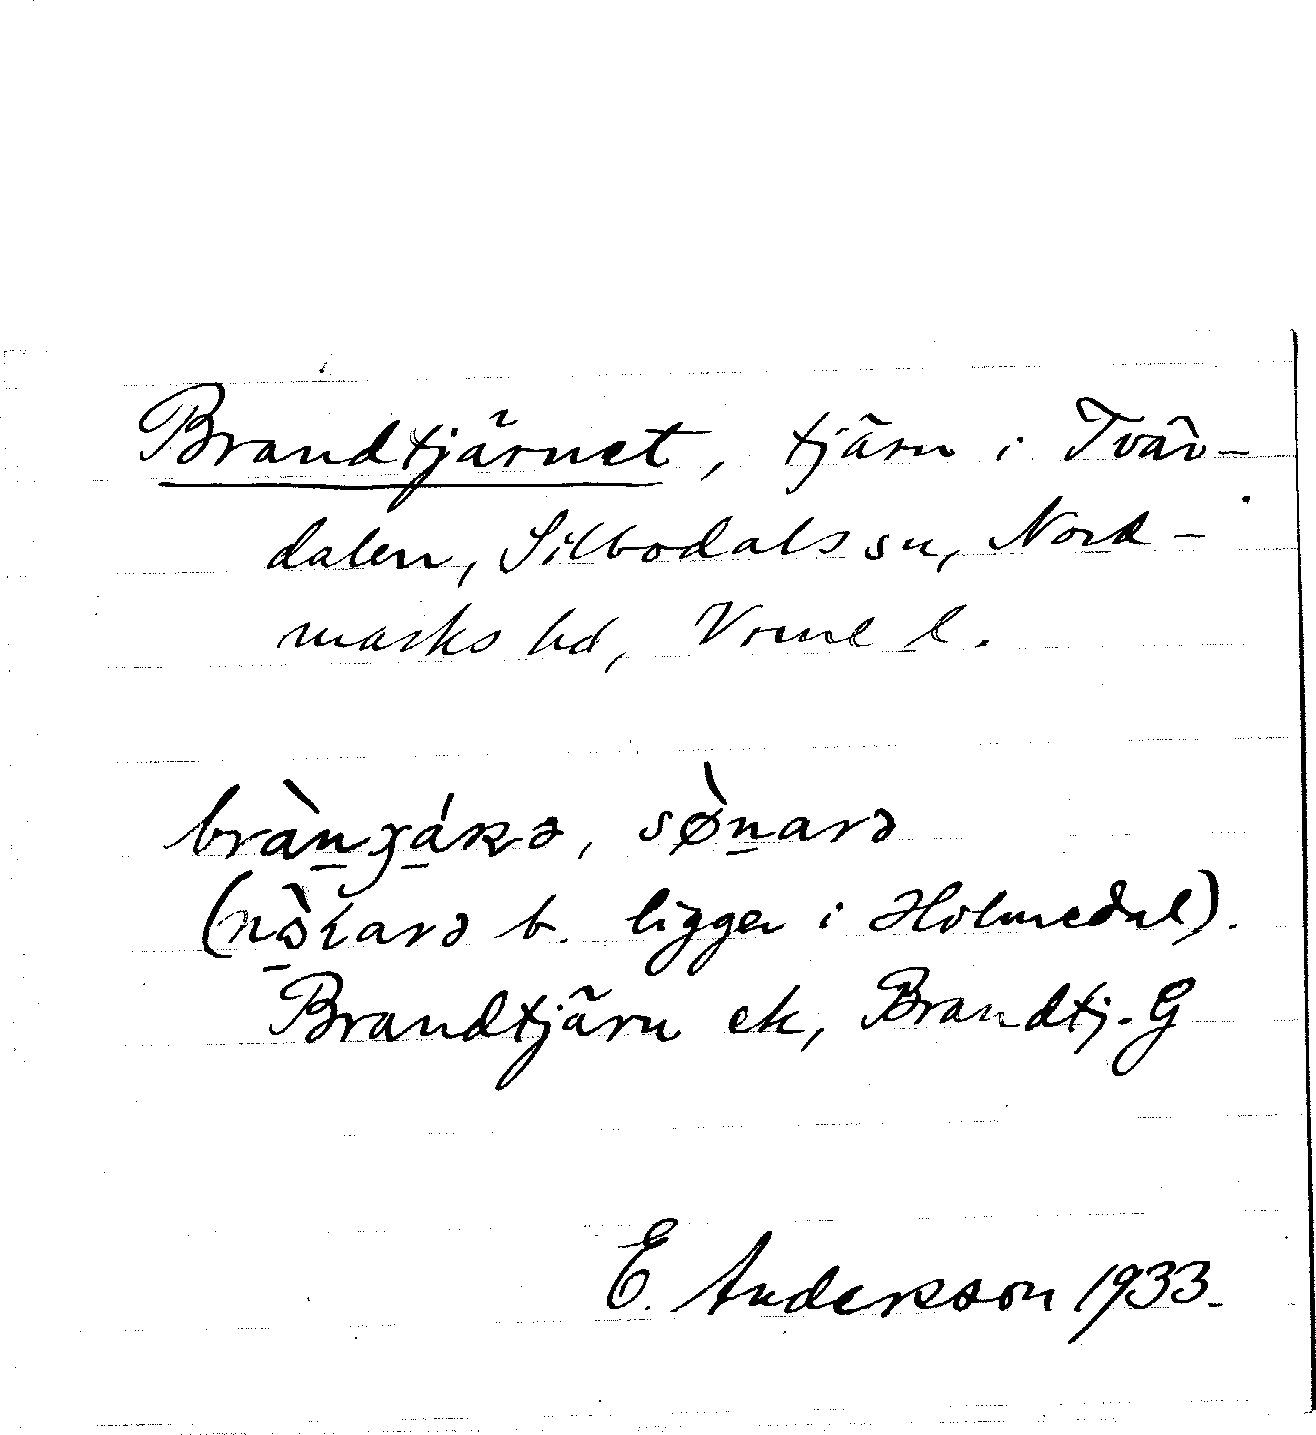 Brandtjärnet, tjärn i Tvär-
dalen, Silbodals sn, Nord-
marks hd, Vrml l.
sø̀narə
ligger i Holmedal).
Brandtjärn ek, Brandtj. G
E. Andersson 1933.